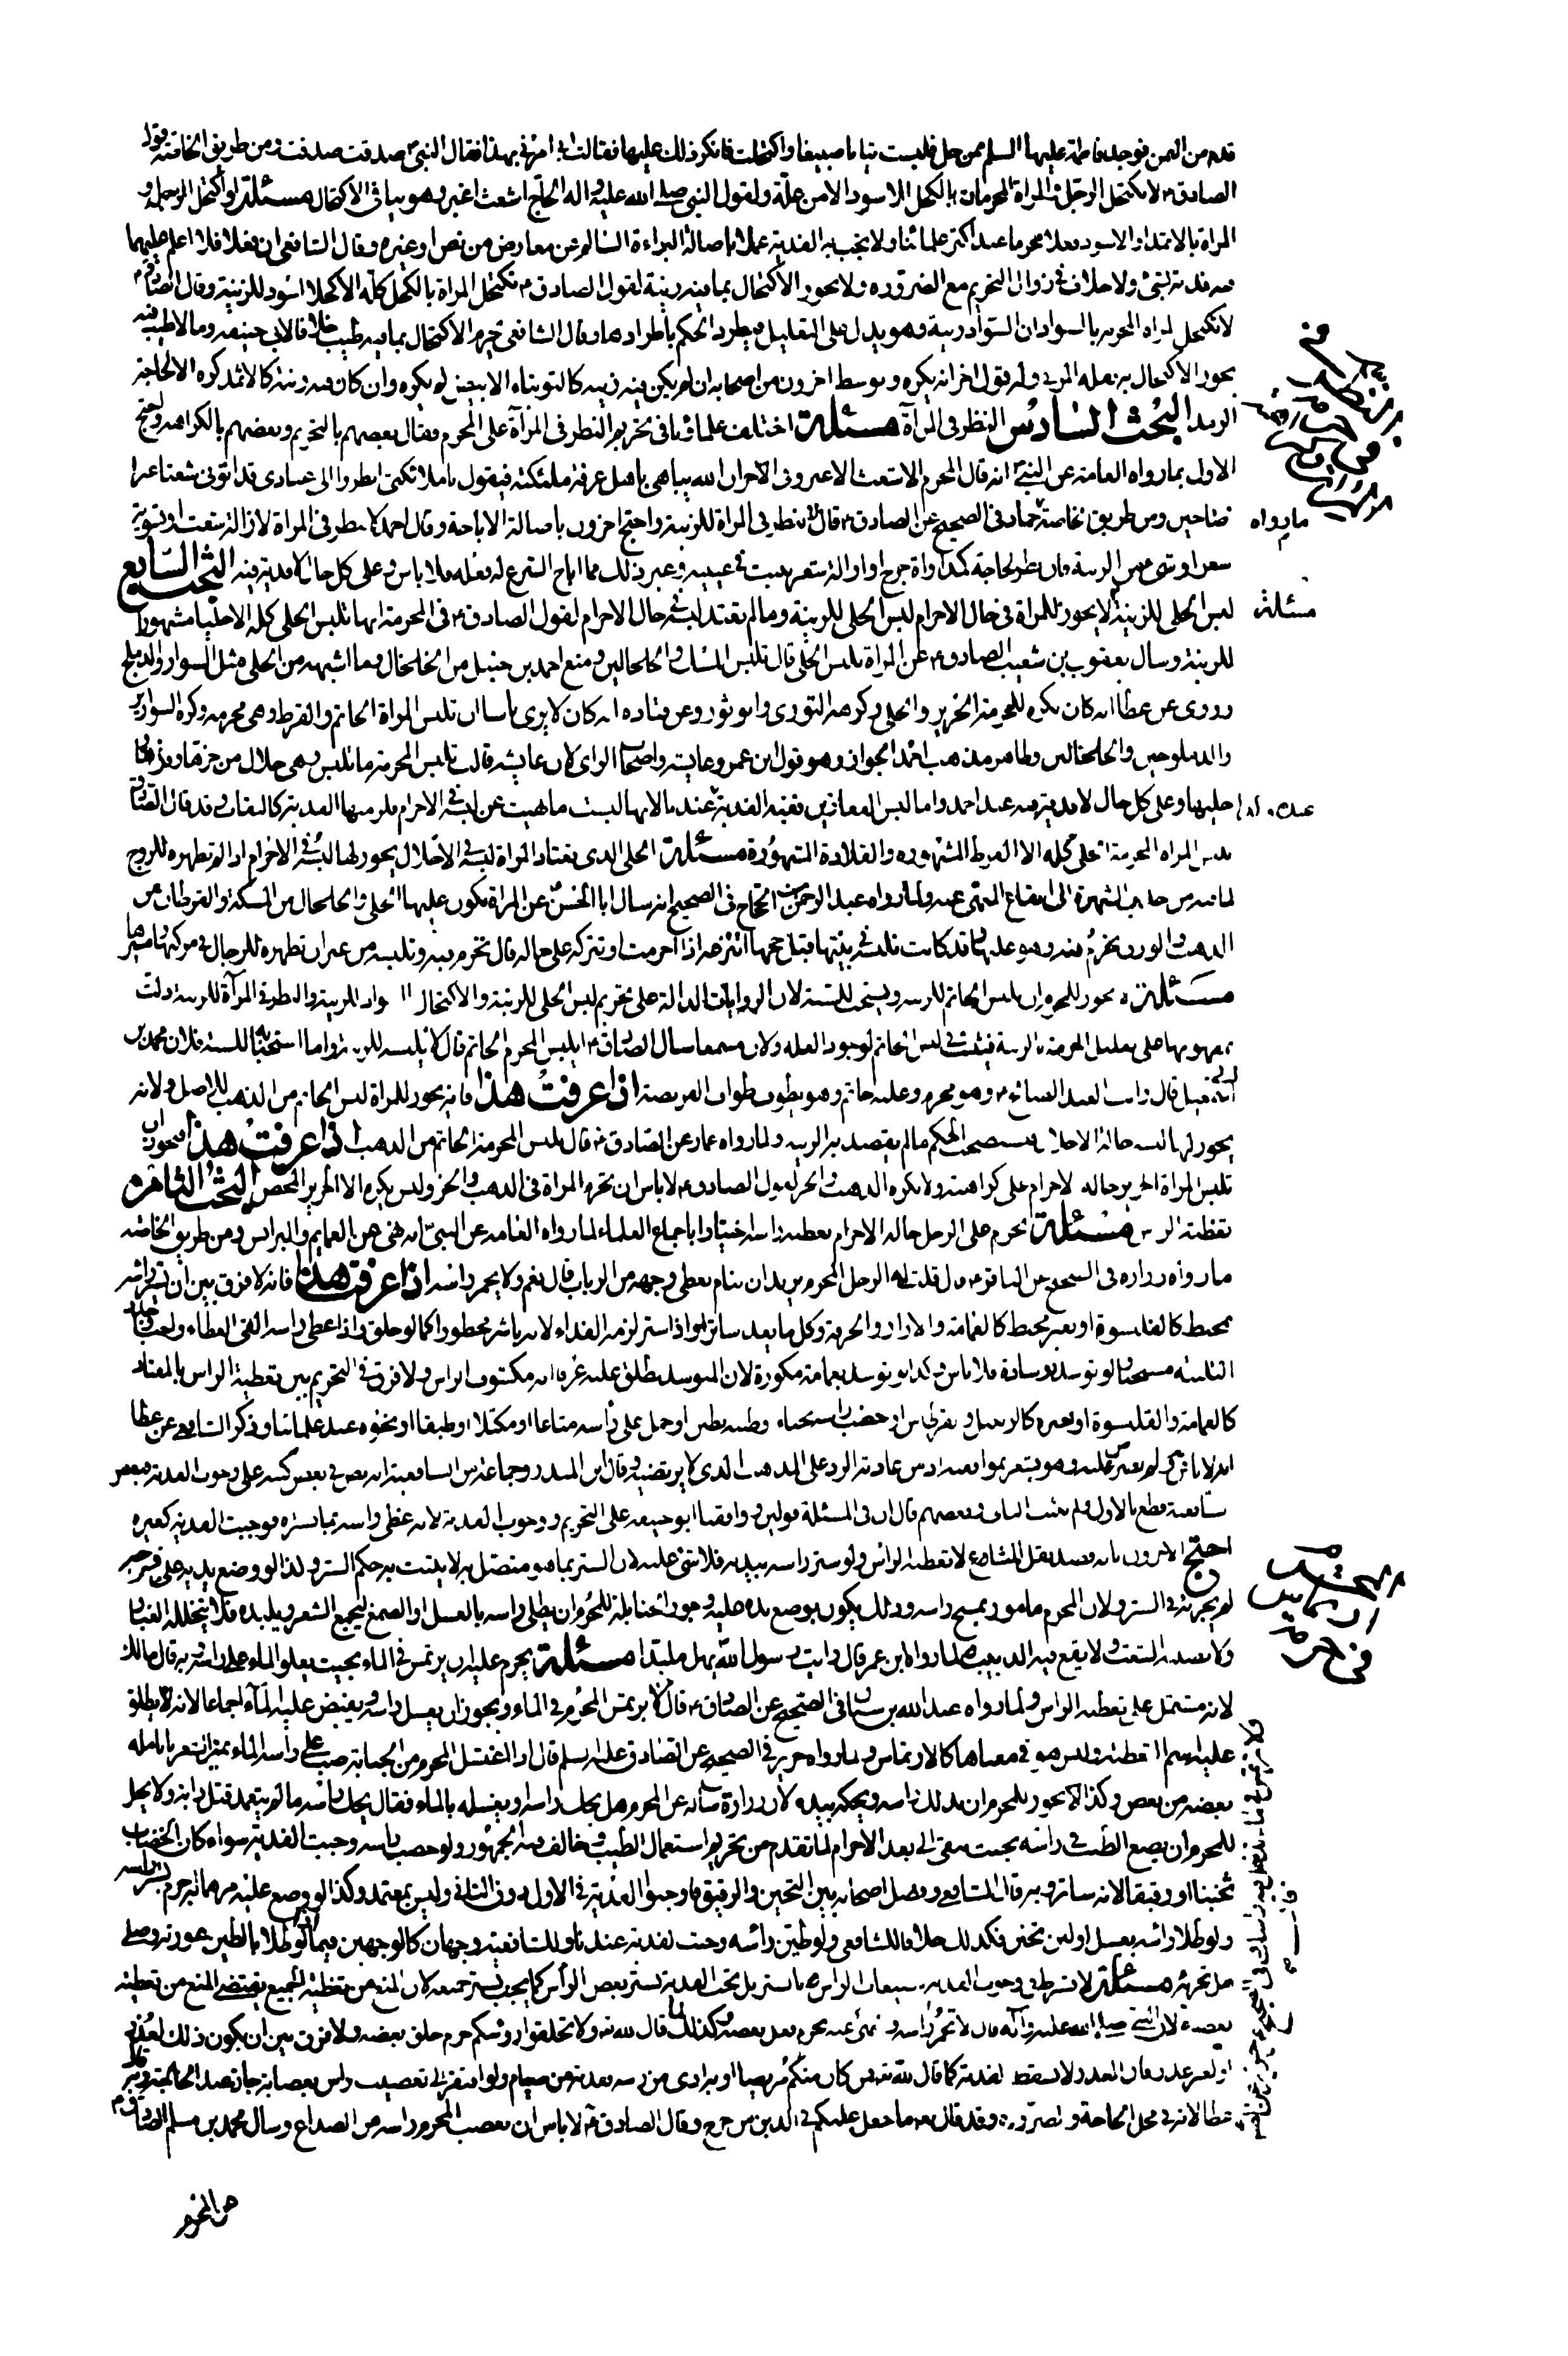 قدم من اليمن فوجد فاطمة عليها السلم ممن حل فلبست ثيابا صبيغا واكتحلت فانكر ذلك عليها فقالت ابى امرنى بهذا فقال النبى ص صدقت صدقت ومن طريق الخاصة قول
الصادق ع لا يكتحل الرجل والمراة المحرمان بالكحل الاسود الا من علة ولقول النبى صلى الله عليه واله الحاج اشعث اغبر وهو ينافى الاكتحال مسئلة لو اكتحل الرجل او
المراة بالاثمد او الاسود فعلا محرما عند اكثر علمائنا ولا يجب به الفدية عملا باصالة البراءة السالم عن معارض من نص او غيره وقال الشافعى ان فعلا فلا اعلم عليهما
فيه فدية بشئ ولا خلاف فى زوال التحريم مع الضرورة ولا يجوز الاكتحال بما فيه زينة لقول الصادق ع تكتحل المراة بالكحل كله الا كحلا اسود للزينة وقال الصادق ع
لا تكتحل المراة المحرمة بالسواد ان السواد زينة وهو يدل على التعليل فيطرد الحكم باطرادها وقال الشافعى يحرم الاكتحال بما فيه طيب خلافا لابى حنيفة وما لا طيب فيه
يجوز الاكتحال به نقله المزنى وله قول اخر انه يكره وتوسط اخرون من اصحابه ان لم يكن فيه زينة كالتوتياء الابيض لم يكره وان كان فيه زينة كالاثمد كره الا لحاجة
الرمد البحث السادس النظر فى المرآة مسئلة اختلف علماؤنا فى تحريم النظر فى المرآة على المحرم فقال بعضهم بالتحريم وبعضهم بالكراهة واحتج
الاول بما رواه العامة عن النبى ص انه قال المحرم الاشعث الاغبر وفى الاخر ان الله يباهى باهل عرفة ملئكته فيقول يا ملائكتى انظروا الى عبادى قد اتونى شعثا غبرا
ضاحين ومن طريق الخاصة ما رواه حماد فى الصحيح عن الصادق ع قال لا تنظر فى المراة للزينة واحتج اخرون باصالة الاباحة وقال احمد لا ينظر فى المراة لازالة شعث او تسوية
شعر او شئ من الزينة فان نظر لحاجة كمداواة جرح او ازالة شعر ينبت فى عينيه وغير ذلك مما اباح الشرع له فعله فلا باس وعلى كل حال لا فدية فيه البحث السابع
لبس الحلى للزينة مسئلة لا يجوز للمراة فى حال الاحرام لبس الحلى للزينة وما لم يعتد لبسه فى حال الاحرام لقول الصادق ع فى المحرمة انها تلبس الحلى كله الا حليا مشهورا
للزينة وسال يعقوب بن شعيب الصادق ع عن المراة تلبس الحلى قال تلبس المسك والخلخالين ومنع احمد بن حنبل من الخلخال وما اشبهه من الحلى مثل السوار والدملج
وروى عن عطا انه كان يكره للمحرمة الحرير والحلى وكرهه الثورى وابو ثور وعن قتادة انه كان لا يرى باسا ان تلبس المراة الخاتم والقرط وهى محرمة وكره السوارين
والدملوجين والخلخالين وظاهر مذهب احمد الجواز وهو قول ابن عمر وعايشة واصحاب الراى لان عايشة قالت تلبس المحرمة ما تلبس وهى حلال من خزها وقزها
حليها وعلى كل حال لا فدية فيه عند احمد واما لبس القفازين ففيه الفدية عنده لانها لبست ما نهيت عن لبسه فى الاحرام فلزمها الفدية كالنقاب وقد قال الصادق ع
تلبس المراة المحرمة الحلى كله الا القرط المشهورة والقلادة المشهورة مسئلة الحلى الذى تعتاد المراة لبسه فى الاحلال يجوز لها لبسه فى الاحرام اذا لم تظهره للزوج
لما فيه من جذب الشهوة الى ايقاع المنهى عنه ولما رواه عبد الرحمن بن الحجاج فى الصحيح انه سال ابا الحسن ع عن المراة يكون عليها الحلى والخلخال من المسكة والقرطان من
الذهب والورق تحرم فيه وهو عليها وقد كانت تلبسه فى بيتها قبل حجها اتنزعه اذا احرمت او تتركه على حاله قال تحرم فيه وتلبسه من غير ان تظهره للرجال فى مركبها ومسيرها
مسئلة لا يجوز للمحرم ان يلبس الخاتم للزينة ويستحب للسنة لان الروايات الدالة على تحريم لبس الحلى للزينة والاكتحال بالسواد للزينة والنظر فى المرآة للزينة دلت
بمفهومها على تعليل الحرمة بالزينة فيثبت فى لبس الخاتم لوجود العلة ولان مسمعا سال الصادق ع ايلبس المحرم الخاتم قال لا يلبسه للزينة واما استحبابه للسنة فلان محمد بن
اسمعيل قال رايت العبد الصالح ع وهو محرم وعليه خاتم وهو يطوف طواف الفريضة اذا عرفت هذا فانه يجوز للمراة لبس الخاتم من الذهب للاصل ولانه
يجوز لها لبسه حالة الاحلال فيستصحب الحكم ما لم يقصد به الزينة ولما رواه عمار عن الصادق ع قال تلبس المحرمة الخاتم من الذهب اذا عرفت هذا فيجوز ان
تلبس المراة الحرير حالة الاحرام على كراهية ولا يكره الذهب والخز لقول الصادق ع لا باس ان تحرم المراة فى الذهب والخز وليس يكره الا الحرير المحض البحث الثامن
تغطية الراس مسئلة يحرم على الرجل حالة الاحرام تغطية راسه اختيارا باجماع العلماء لما رواه العامة عن النبى ص انه نهى عن العمايم والبرانس ومن طريق الخاصة
ما رواه زرارة فى الصحيح عن الباقر ع قال قلت له الرجل المحرم يريد ان ينام يغطى وجهه من الذباب قال نعم ولا يخمر راسه اذا عرفت هذا فانه لا فرق بين ان يستر راسه
بمخيط كالقلنسوة او بغير مخيط كالعمامة والازار والخرقة وكل ما يعد ساترا واذا ستر لزمه الفداء لانه باشر محظورا كما لو حلق واذا غطى راسه القى الغطاء وجدد
التلبية مستحبا ولو توسد بوسادة فلا باس وكذا لو توسد بعمامة مكورة لان المتوسد يطلق عليه عرفا انه مكشوف الراس ولا فرق فى التحريم بين تغطية الراس بالمعتاد
كالعمامة والقلنسوة او بغيره كالزنبيل والقرطاس او خضب راسه بحناء وطينه بطين او حمل على راسه متاعا او مكتلا او طبقا او نحوه عند علمائنا وذكر الشافعى عن عطا
انه لا باس به ولم يعترض عليه وهو يشعر بموافقته اذ من عادته الرد على المذهب الذى لا يرتضيه وقال ابن المنذر وجماعة من الشافعية انه نص فى بعض كتبه على وجوب الفدية فبعض
الشافعية قطع بالاول ولم يثبت الثانى وبعضهم قال ان فى المسئلة قولين ووافقنا ابو حنيفة على التحريم ووجوب الفدية لانه غطى راسه بما يستره فوجبت الفدية كغيره
احتج الاخرون بانه قصد نقل المتاع لا تغطية الراس ولو ستر راسه بيديه فلا شئ عليه لان الستر بما هو متصل به لا يثبت به حكم الستر ولذا لو وضع يديه على فرجه
لم يجزئه فى الستر ولان المحرم مامور بمسح راسه وذلك يكون بوضع يده عليه وجوز الحنابلة للمحرم ان يطلى راسه بالعسل او الصمغ ليجمع الشعر ويلبده فلا يتخلله الغبار
ولا يصيبه الشعث ولا يقع فيه الدبيب لما رواه ابن عمر قال رايت رسول الله يهل ملبدا مسئلة يحرم عليه ان يرتمس فى الماء بحيث يعلو الماء على راسه وبه قال مالك
لانه مشتمل على تغطية الراس ولما رواه عبد الله بن سنان فى الصحيح عن الصادق ع قال لا يرتمس المحرم فى الماء ويجوز ان يغسل راسه ويفيض عليه الماء اجماعا لانه لا يطلق
عليه اسم التغطية وليس هو فى معناها كالارتماس ولما رواه حريز فى الصحيح عن الصادق عليه السلم قال اذا اغتسل المحرم من الجنابة صب على راسه الماء يميز الشعر بانامله
بعضه من بعض وكذا لا يجوز للمحرم ان يدلك راسه ويحكه بيده لان زرارة ساله عن المحرم هل يحك راسه او يغسله بالماء فقال يحك راسه ما لم يتعمد قتل دابة ولا يحل
للمحرم ان يضع الطيب فى راسه بحيث يبقى الى بعد الاحرام لما تقدم من تحريم استعمال الطيب وخالف فيه الجمهور ولو خضب راسه وجبت الفدية سواء كان الخضاب
ثخينا او رقيقا لانه ساتر وبه قال الشافعى وفصل اصحابه بين الثخين والرقيق فاوجبوا الفدية فى الاول دون الثانى وليس بمعتمد وكذا لو وضع عليه مرهما له جرم يستر راسه
ولو طلا راسه بعسل او لبن ثخين فكذلك خلافا للشافعى ولو طين راسه وجبت الفدية عندنا وللشافعية وجهان كالوجهين فيما لو طلا بالطين عورته وصلى
هل تجزئه مسئلة لا يشترط فى وجوب الفدية استيعاب الراس بالستر بل تجب الفدية بستر بعض الراس كما يجب بستر جميعه لان المنع من تغطية الجميع يقتضى المنع من تغطية
بعضه لان النبى صلى الله عليه واله قال لا تخمروا راسه والنهى عنه يحرم فعل بعضه وكذلك لما قال الله تع ولا تحلقوا رؤسكم حرم حلق بعضه ولا فرق بين ان يكون ذلك لعذر
او لغير عذر فان العذر لا يسقط الفدية كما قال الله تع فمن كان منكم مريضا او به اذى من راسه ففدية من صيام ولو افتقر الى تعصيب راسه بعصابة جاز عند الحاجة وبه قال
عطا لانه فى محل الحاجة والضرورة وقد قال تع ما جعل عليكم فى الدين من حرج وقال الصادق ع لا باس ان يعصب المحرم راسه من الصداع وسال محمد بن مسلم الصادق ع
عن المحرم